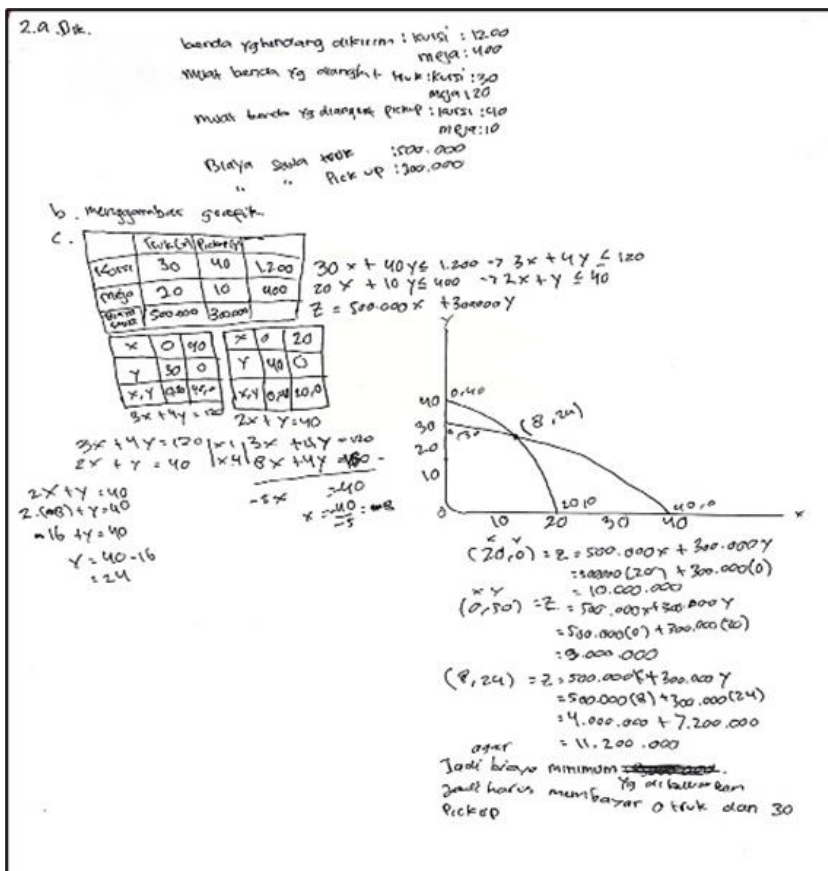 2.a. Dik.
benda yg hendang dikirim : kursi : 1200
meja : 400
muat benda yg diangkut truk : kursi : 30
meja : 20
muat benda yg diangkut Pickup : kursi : 40
meja : 10
Biaya sewa truk : 500.000
" " Pick up : 300.000
b. menggambar grafik.
c.
Truk(x) Pickup(y)
Kursi 30 40 1.200
meja 20 10 400
500.000 300.000
30x + 40y ≤ 1.200 → 3x + 4y ≤ 120
20x + 10y ≤ 400 → 2x + y ≤ 40
Z = 500.000x + 300000y
x 0 40
y 30 0
x,y 0,30 40,0
3x + 4y = 120
x 0 20
y 40 0
x,y 0,40 20,0
2x + y = 40
3x + 4y = 120 | x1 | 3x + 4y = 120
2x + y = 40 | x4 | 8x + 4y = 160 -
-5x = -40
x = -40/-5 = 8
2x + y = 40
2.(8) + y = 40
16 + y = 40
y = 40 - 16
= 24
y
40 0,40
30 0,30
20
10
(8,24)
0 10 20 30 40 x
20,0 40,0
x y
(20,0) = Z = 500.000x + 300.000y
= 500000(20) + 300.000(0)
= 10.000.000
x y
(0,30) = Z = 500.000x + 300.000y
= 500.000(0) + 300.000(30)
= 9.000.000
(8,24) = Z = 500.000x + 300.000y
= 500.000(8) + 300.000(24)
= 4.000.000 + 7.200.000
= 11.200.000
agar
Jadi biaya minimum
yg dikeluarkan
Jadi harus membayar 0 truk dan 30
Pickup